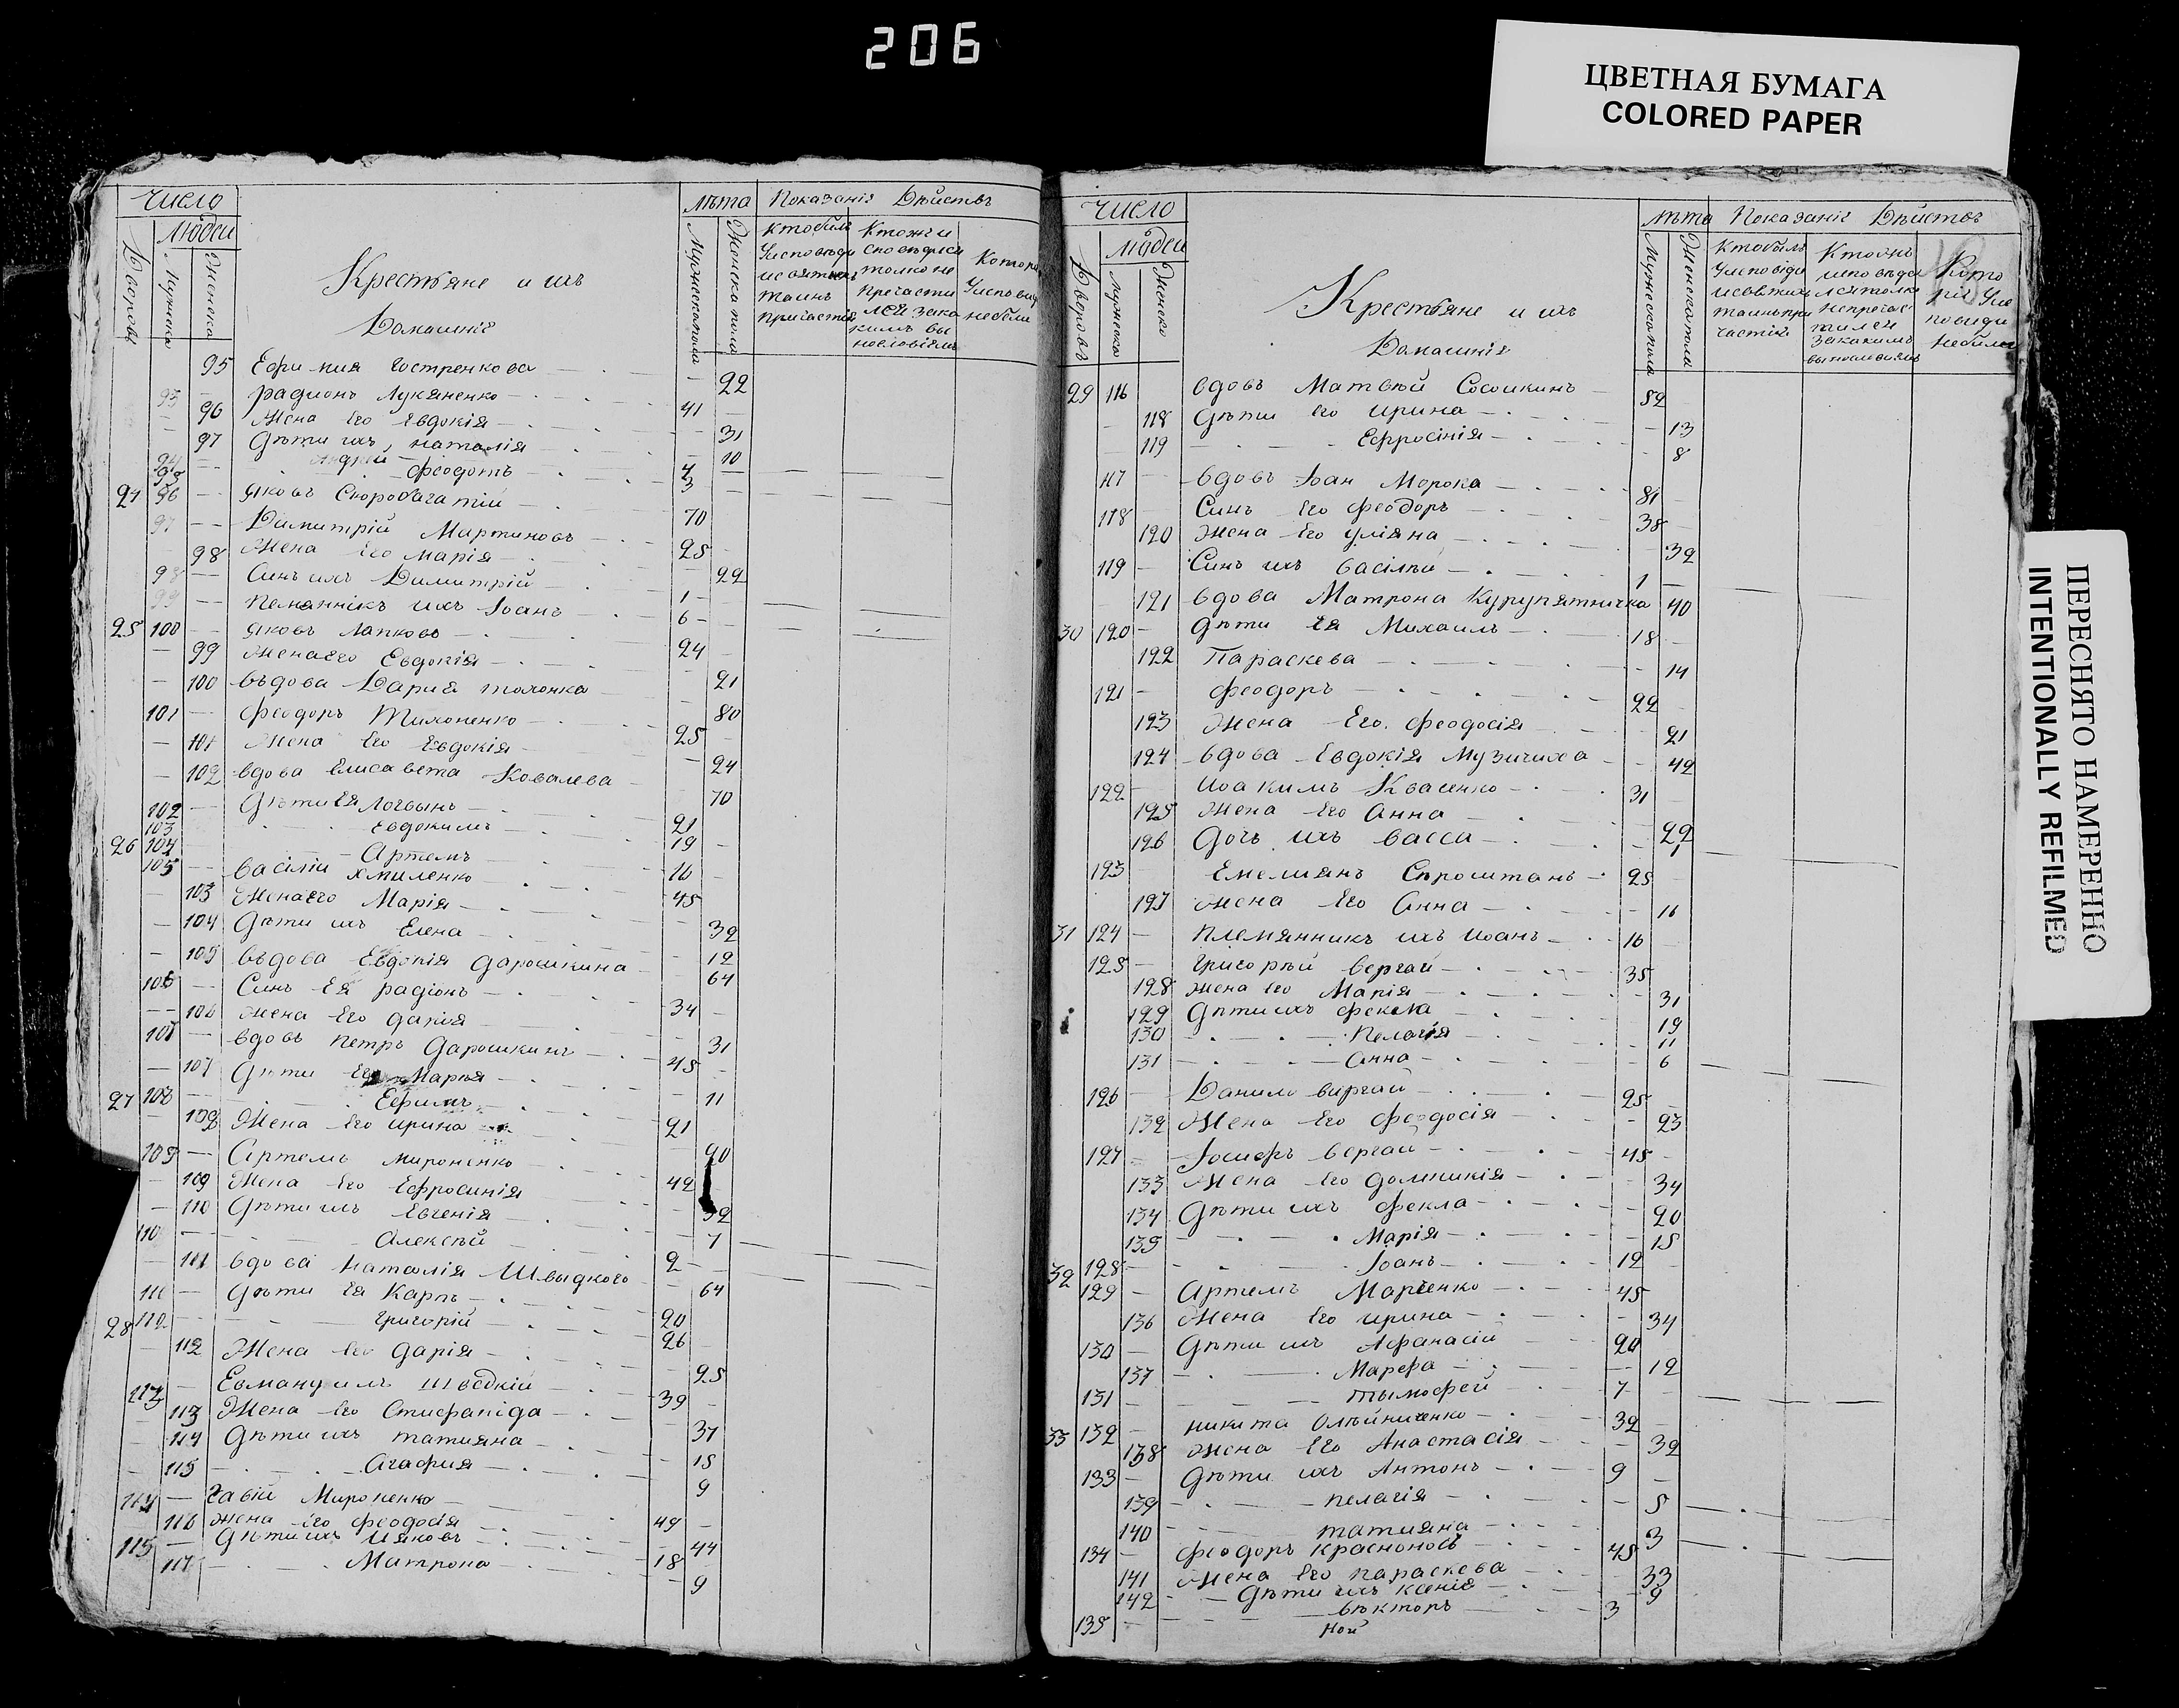 206
ЦВЕТНАЯ БУМАГА
COLORED PAPER
ПЕРЕСНЯТО НАМЕРЕННО
INTENTIONALLY REFILMED
Число
Людей
Дворовъ
Мужеска
Женска
Крестьяне и ихъ
Домашніе
Лѣта
Мужеска пола
Женска пола
Показаніе Дѣйствъ
95 Ефимия Костренкова 22
93 радионъ Лукяненко 41
96 Жена Его Евдокія 31
97 Дѣти ихъ, наталія 10
94 Андрей 4
95 феодотъ 3
24 96 яковъ Скоробагатій 70
97 Димитрій Мартиновъ 25
98 Жена Его Марія 22
98 Синъ ихъ Димитрій 1
99 Племаннікъ ихъ Іоанъ 6
25 100 яковъ Лапковъ 24
99 Жена его Евдокія 21
100 вѣдова Дария 80
101 феодоръ Тихоненко 25
101 Жена Его Евдокія 24
102 вдова Елисавета Ковалева 70
102 Дѣти Ея Логвынъ 21
103 Евдокимъ 19
26 104 Артемъ 16
105 василій Хмиленко 45
103 Жена его Марія 32
104 Дѣти ихъ Елена 12
105 вѣдова Евдокія Дарошкина 64
106 Синъ Ея радіонъ 34
106 Жена Его дарія 31
107 вдовъ Петръ Дарошкинъ 45
107 Дѣти Его Марья 11
27 108 Ефимъ 21
108 Жена Его ирина 20
109 Артемъ Мироненко 42
109 Жена Его Ефросинія 32
110 Дѣти ихъ Евгенія 7
110 Алексѣй 2
111 вдова Наталія Швыдкого 64
111 Дѣти Ея Карпъ 20
28 112 Григорій 26
112 Жена Его Дарія 25
113 Еммануилъ Шведкій 39
113 Жена Его Стифанида 37
114 Дѣти ихъ татияна 15
115 Агафия 9
114 Савій Мироненко 49
116 Жена Его феодосія 44
115 Дѣти ихъ Ияковъ 18
117 Матрона 9
Число
Людей
Дворовъ
Мужеско
Женско
Крестьяне и ихъ
Домашнія
Лѣта
Мужеска пола
Женска пола
Показаніе Дѣйствъ
29 116 вдовъ Матвѣй Сосошкинъ 52
118 Дѣти Его Ирина 13
119 Ефросінія 8
117 вдовъ Іоан Морока 81
118 Синъ Его феодоръ 38
120 Жена Его уліяна 32
119 Синъ ихъ василѣй 1
121 вдова Матрона Курупятничка 40
30 120 Дѣти Ея Михаилъ 18
122 Параскева 14
121 феодоръ 22
123 Жена Его феодосія 21
124 вдова Евдокія Музичиха 42
122 Иоакимъ Квасенко 31
125 Жена Его Анна 22
126 Дочь ихъ васса 1
123 Емелиянъ Спроштанъ 25
127 Жена Его Анна 16
31 124 Племянникъ ихъ иоанъ 16
125 Григорѣй вергай 35
128 Жена Его Марія 31
129 Дѣти ихъ фекла 19
130 Пелагія 11
131 Анна 6
126 Данило виргай 25
132 Жена Его феодосія 23
127 Іосифъ вергай 45
133 Жена Его Домникія 34
134 Дѣти ихъ фекла 20
135 Марія 15
32 128 Іоанъ 12
129 Артемъ Марченко 45
136 Жена Его ирина 34
130 Дѣти ихъ Афанасій 20
137 Марфа 12
131 тымофей 7
33 132 никита Олѣйниченко 32
138 Жена Его Анастасія 32
133 Дѣти ихъ Антонъ 9
139 пелагія 5
140 татияна 3
134 феодоръ Красноносъ 45
141 Жена Его параскева 33
142 Дѣти ихъ ксенія 9
135 викторъ 3